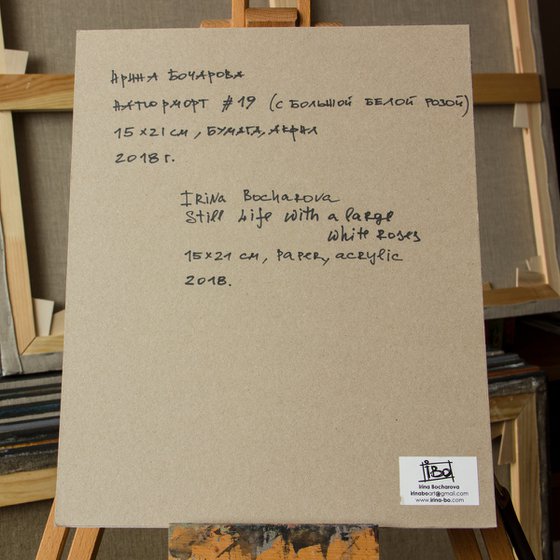 Ирина Бочарова
Натюрморт #19 (с большой белой розой)
15x21 см, бумага, акрил
2018 г.
Irina Bocharova
Still Life with a large
white roses
15x21 см, paper, acrylic
2018.
iBo
Irina Bocharova
irinaboart@gmail.com
www.irina-bo.com